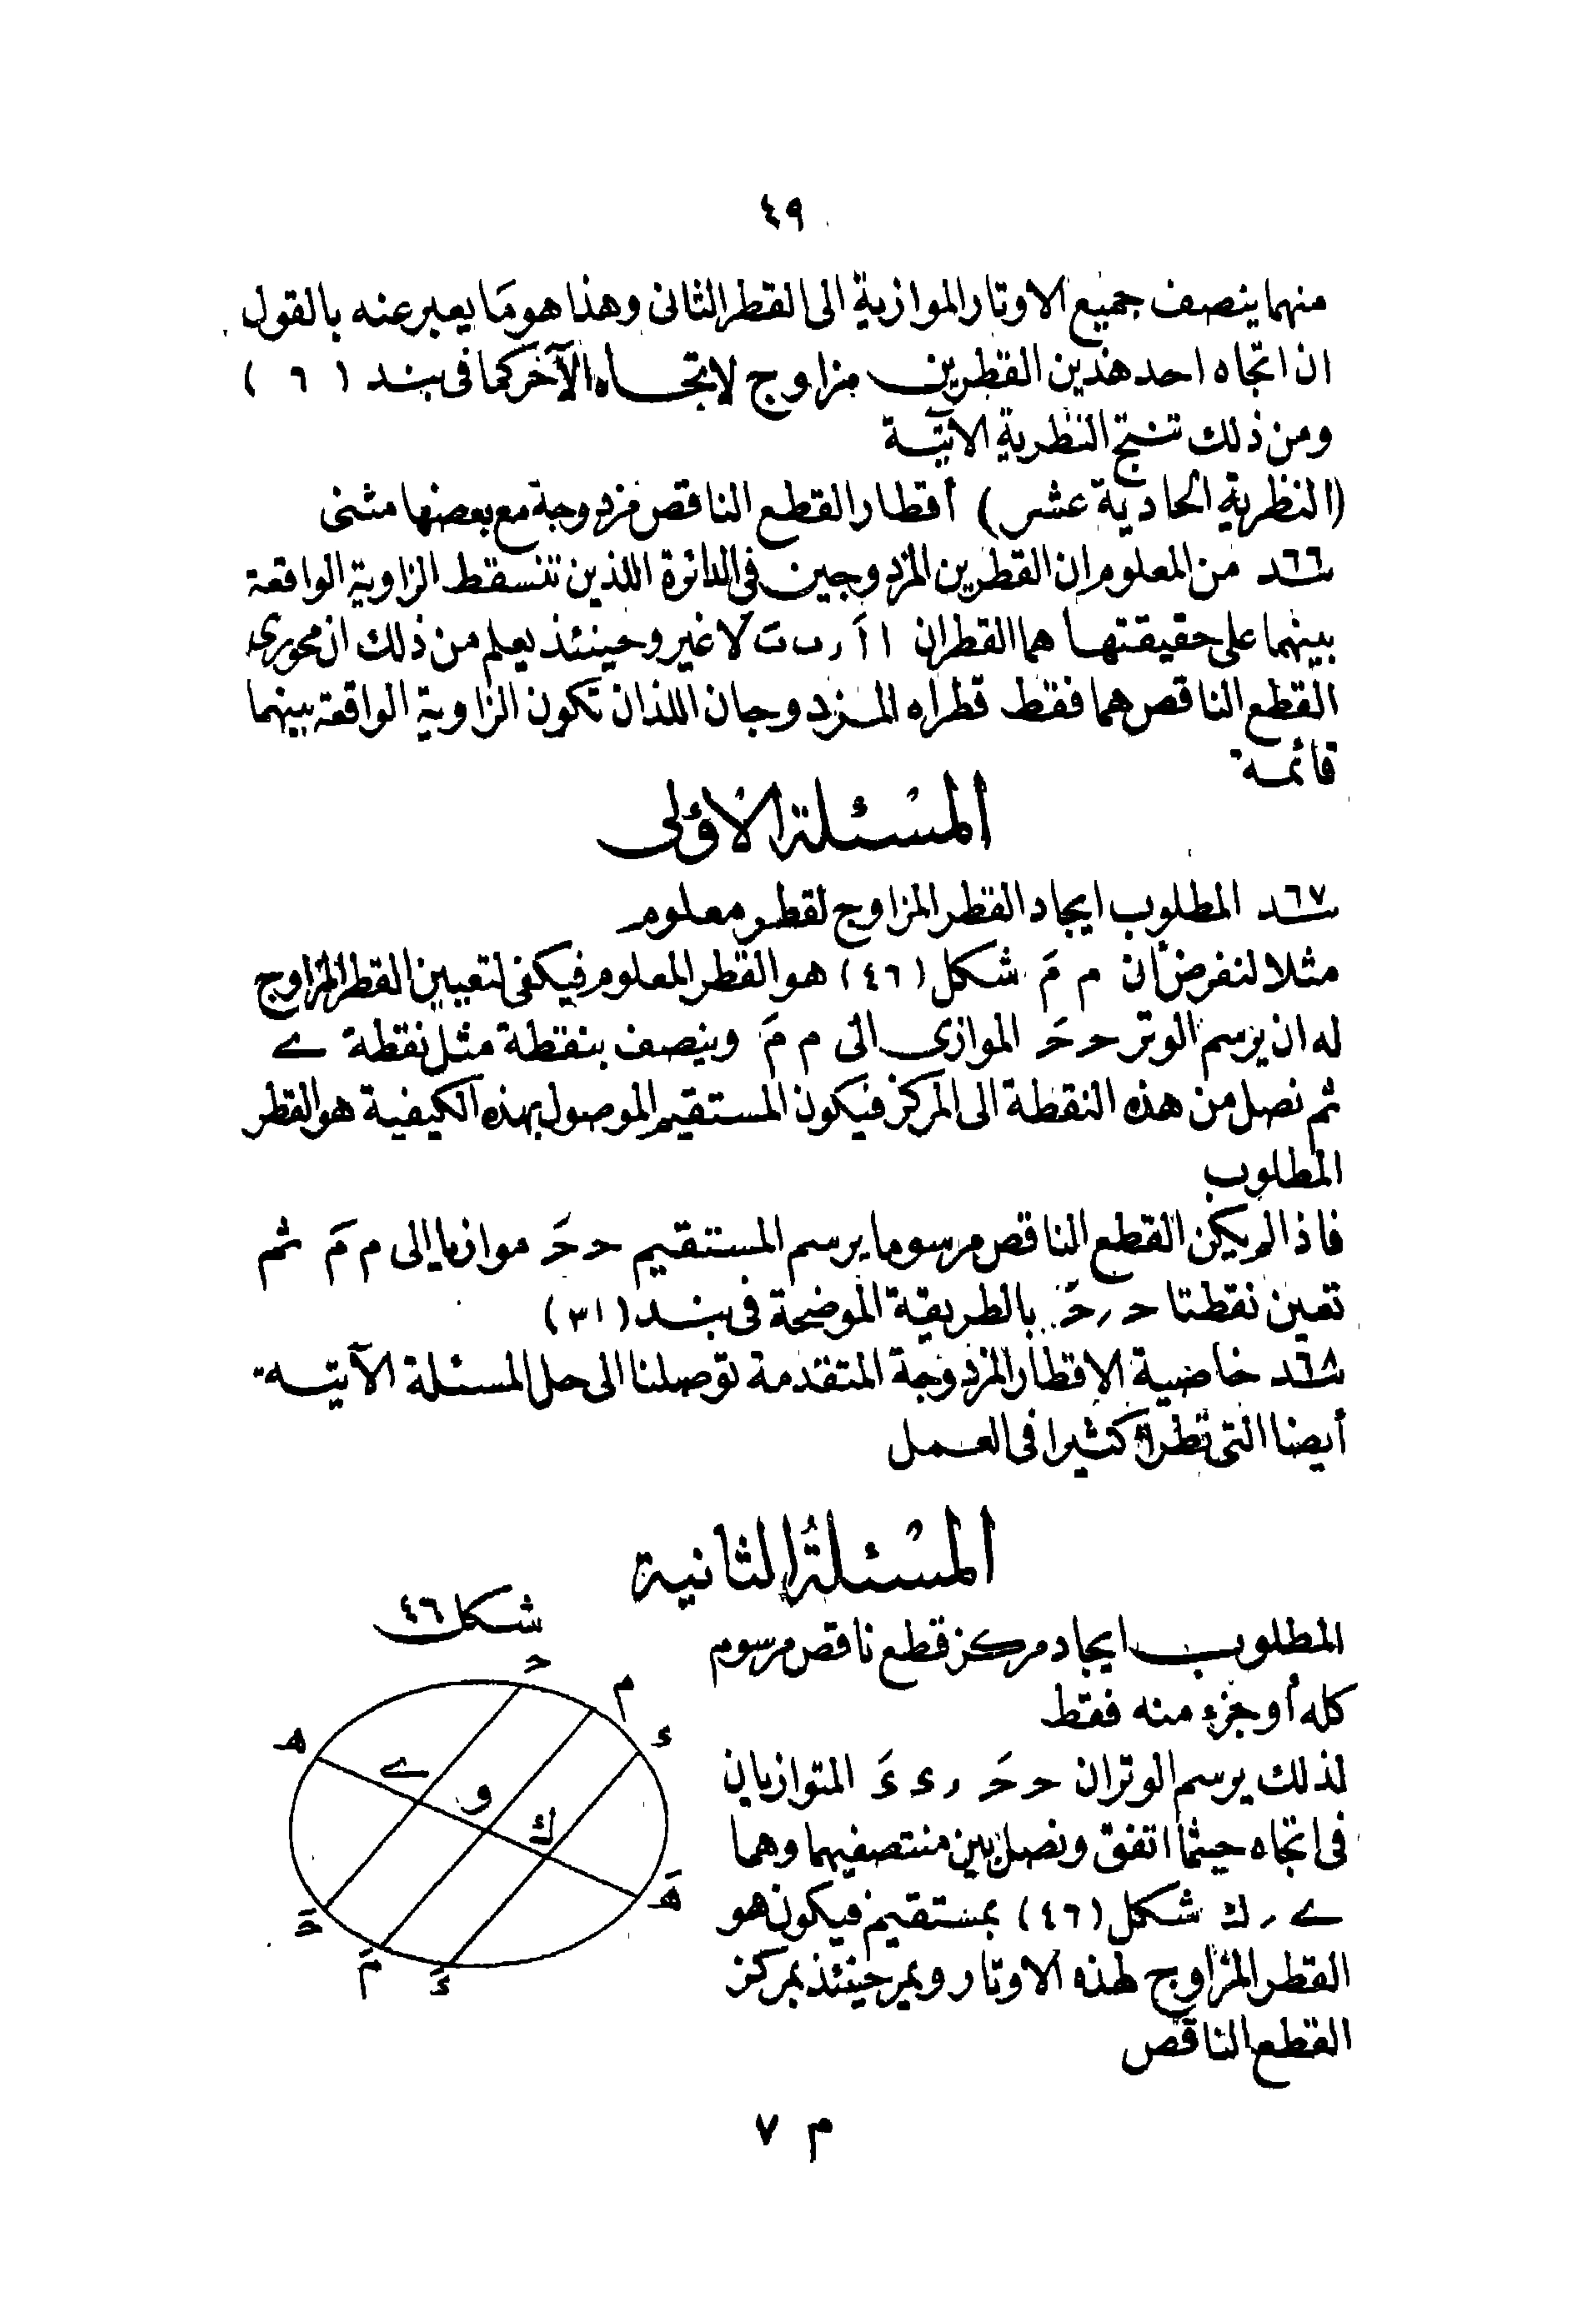 ٤٩
منهما ينصف جميع الاوتار الموازية الى القطر الثانى وهذا هو ما يعبر عنه بالقول
ان اتجاه احد هذين القطرين مزاوج لاتجاه الآخر كما فى بند ( ٦ )
ومن ذلك تنتج النظرية الآتية
(النظرية الحادية عشر) أقطار القطع الناقص مزدوجة مع بعضها مثنى
٦٦ـد من المعلوم ان القطرين المزدوجين فى الدائرة اللذين تنسقط الزاوية الواقعة
بينهما على حقيقتها هما القطران ا اَ ر ب بَ لا غير وحينئذ يعلم من ذلك ان محورى
القطع الناقص هما فقط قطراه المزدوجان اللذان تكون الزاوية الواقعة بينهما
قائمة
المسئلة الاولى
٦٧ـد المطلوب ايجاد القطر المزاوج لقطر معلوم
مثلا لنفرض أن م مَ شكل (٤٦) هو القطر المعلوم فيكفى لتعيين القطر المزاوج
له ان يرسم الوتر حـ حَـ الموازى الى م مَ وينصف بنقطة مثل نقطة ے
ثم نصل من هذه النقطة الى المركز فيكون المستقيم الموصول بهذه الكيفية هو القطر
المطلوب
فاذا لم يكن القطع الناقص مرسوما يرسم المستقيم حـ حَـ موازيا إلى م مَ ثم
تعين نقطتا حـ ر حَـ بالطريقة الموضحة فى بند (٣١)
٦٨ـد خاصية الاقطار المزدوجة المتقدمة توصلنا الى حل المسئلة الآتية
أيضا التى تطرأ كثيرا فى العمل
المسئلة الثانية
شكل ٤٦
المطلوب ايجاد مركز قطع ناقص مرسوم
كله أو جزء منه فقط
لذلك يرسم الوتران حـ حَـ ر ء ءَ المتوازيان
فى اتجاه حيثما اتفق ونصل بين منتصفيهما وهما
ے ر ك شكل (٤٦) بمستقيم فيكون هو
القطر المزاوج لهذه الاوتار ويمر حينئذ بمركز
القطع الناقص
حـ
م
ء
هـ
ے
و
ك
هَـ
حَـ
مَ
ءَ
م ٧